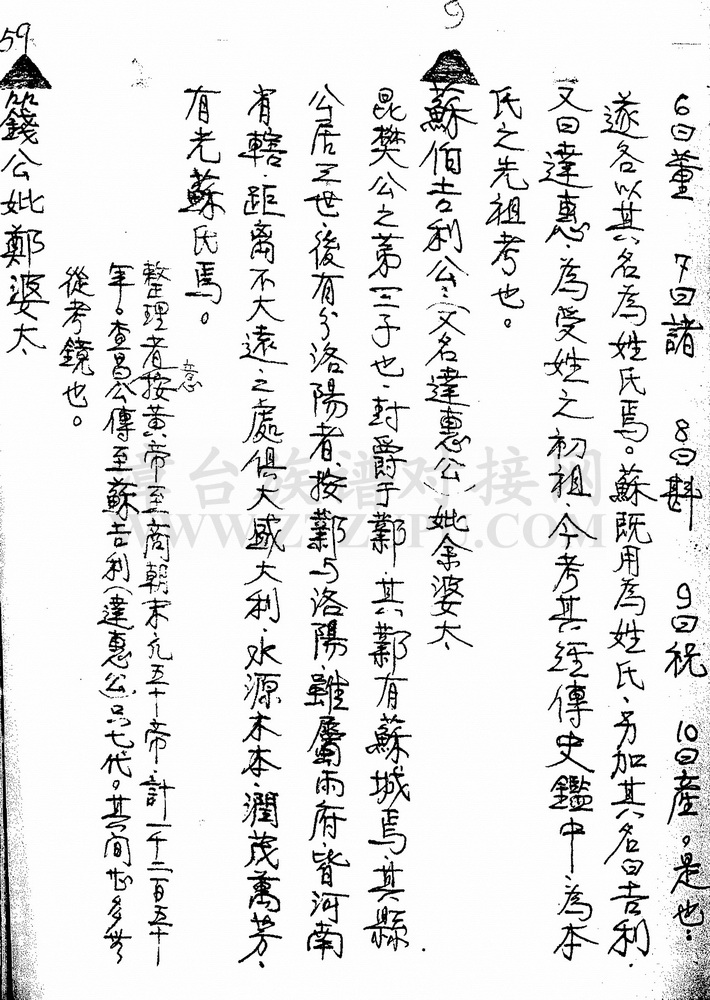 59
6曰董 7曰諸 8曰斟 9曰祝 10曰產。是也:
遂各以其名為姓氏焉。蘇既用為姓氏、另加其名曰吉利、
又曰達惠、為受姓之初祖、今考其經傳史鑑中、為本
氏之先祖考也。
蘇伯吉利公:(又名達惠公)妣余婆太
昆樊公之第三子也、封爵于鄴、其鄴有蘇城焉、其縣
公居三世、後有分洛陽者、按鄴与洛陽、雖屬兩府、皆河南
省轄、距离不大遠、之處俱大盛大利、水源木本、潤茂萬芳、
有光蘇氏焉。
整理者意按黃帝至商朝末、凡五十帝、計一千二百五十一
年。查昌公傳至蘇吉利(達惠公)只七代。其間也多無
從考鏡也。
籛公妣鄭婆太
雲台族谱对接网
WWW.ZTZUPU.COM